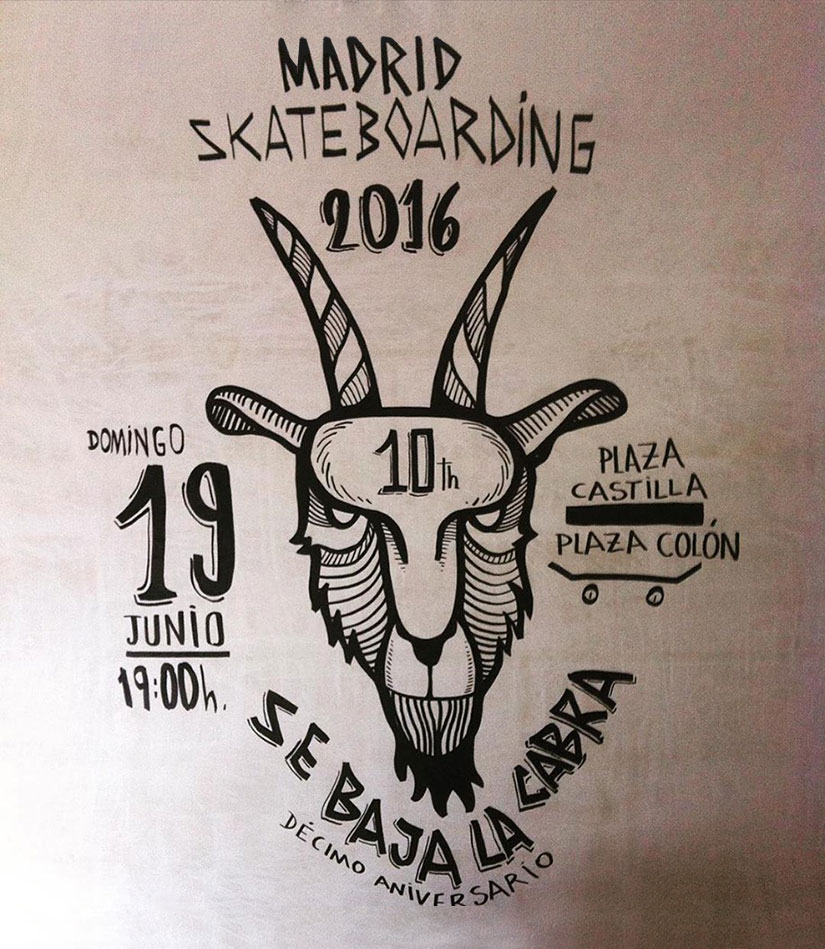 MADRID
SKATEBOARDING
2016
10th
DOMINGO
19
JUNIO
19:00h.
PLAZA
CASTILLA
PLAZA COLÓN
SE BAJA LA CABRA
DÉCIMO ANIVERSARIO